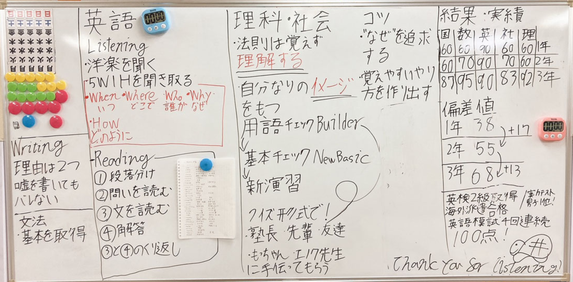 英語
Listening
・洋楽を聞く
・5W1Hを聞き取る
・When ・Where ・Who ・Why
いつ どこで 誰が なぜ
・How
どのように
Writing
理由は2つ
嘘を書いても
バレない
文法
基本を取得
Reading
①段落分け
②問いを読む
③文を読む
④角解答
③と④のくり返し
理科・社会
・法則は覚えず
理解する
自分なりのイメージ
をもつ
用語チェックBuilder
基本チェック New Basic
新演習
クイズ形式で!
・塾長 先輩 友達
に手伝ってもらう
コツ
・"なぜ"を追求
する
・覚えやすいやり
方を作り出す
結果・実績
国 数 英 社 理
60 60 60 60 60 1年
60 70 90 70 60 2年
87 95 90 83 92 3年
偏差値
1年 38
+17
2年 55
+13
3年 68
海外派遣合格
100点!
Thank you for listening!